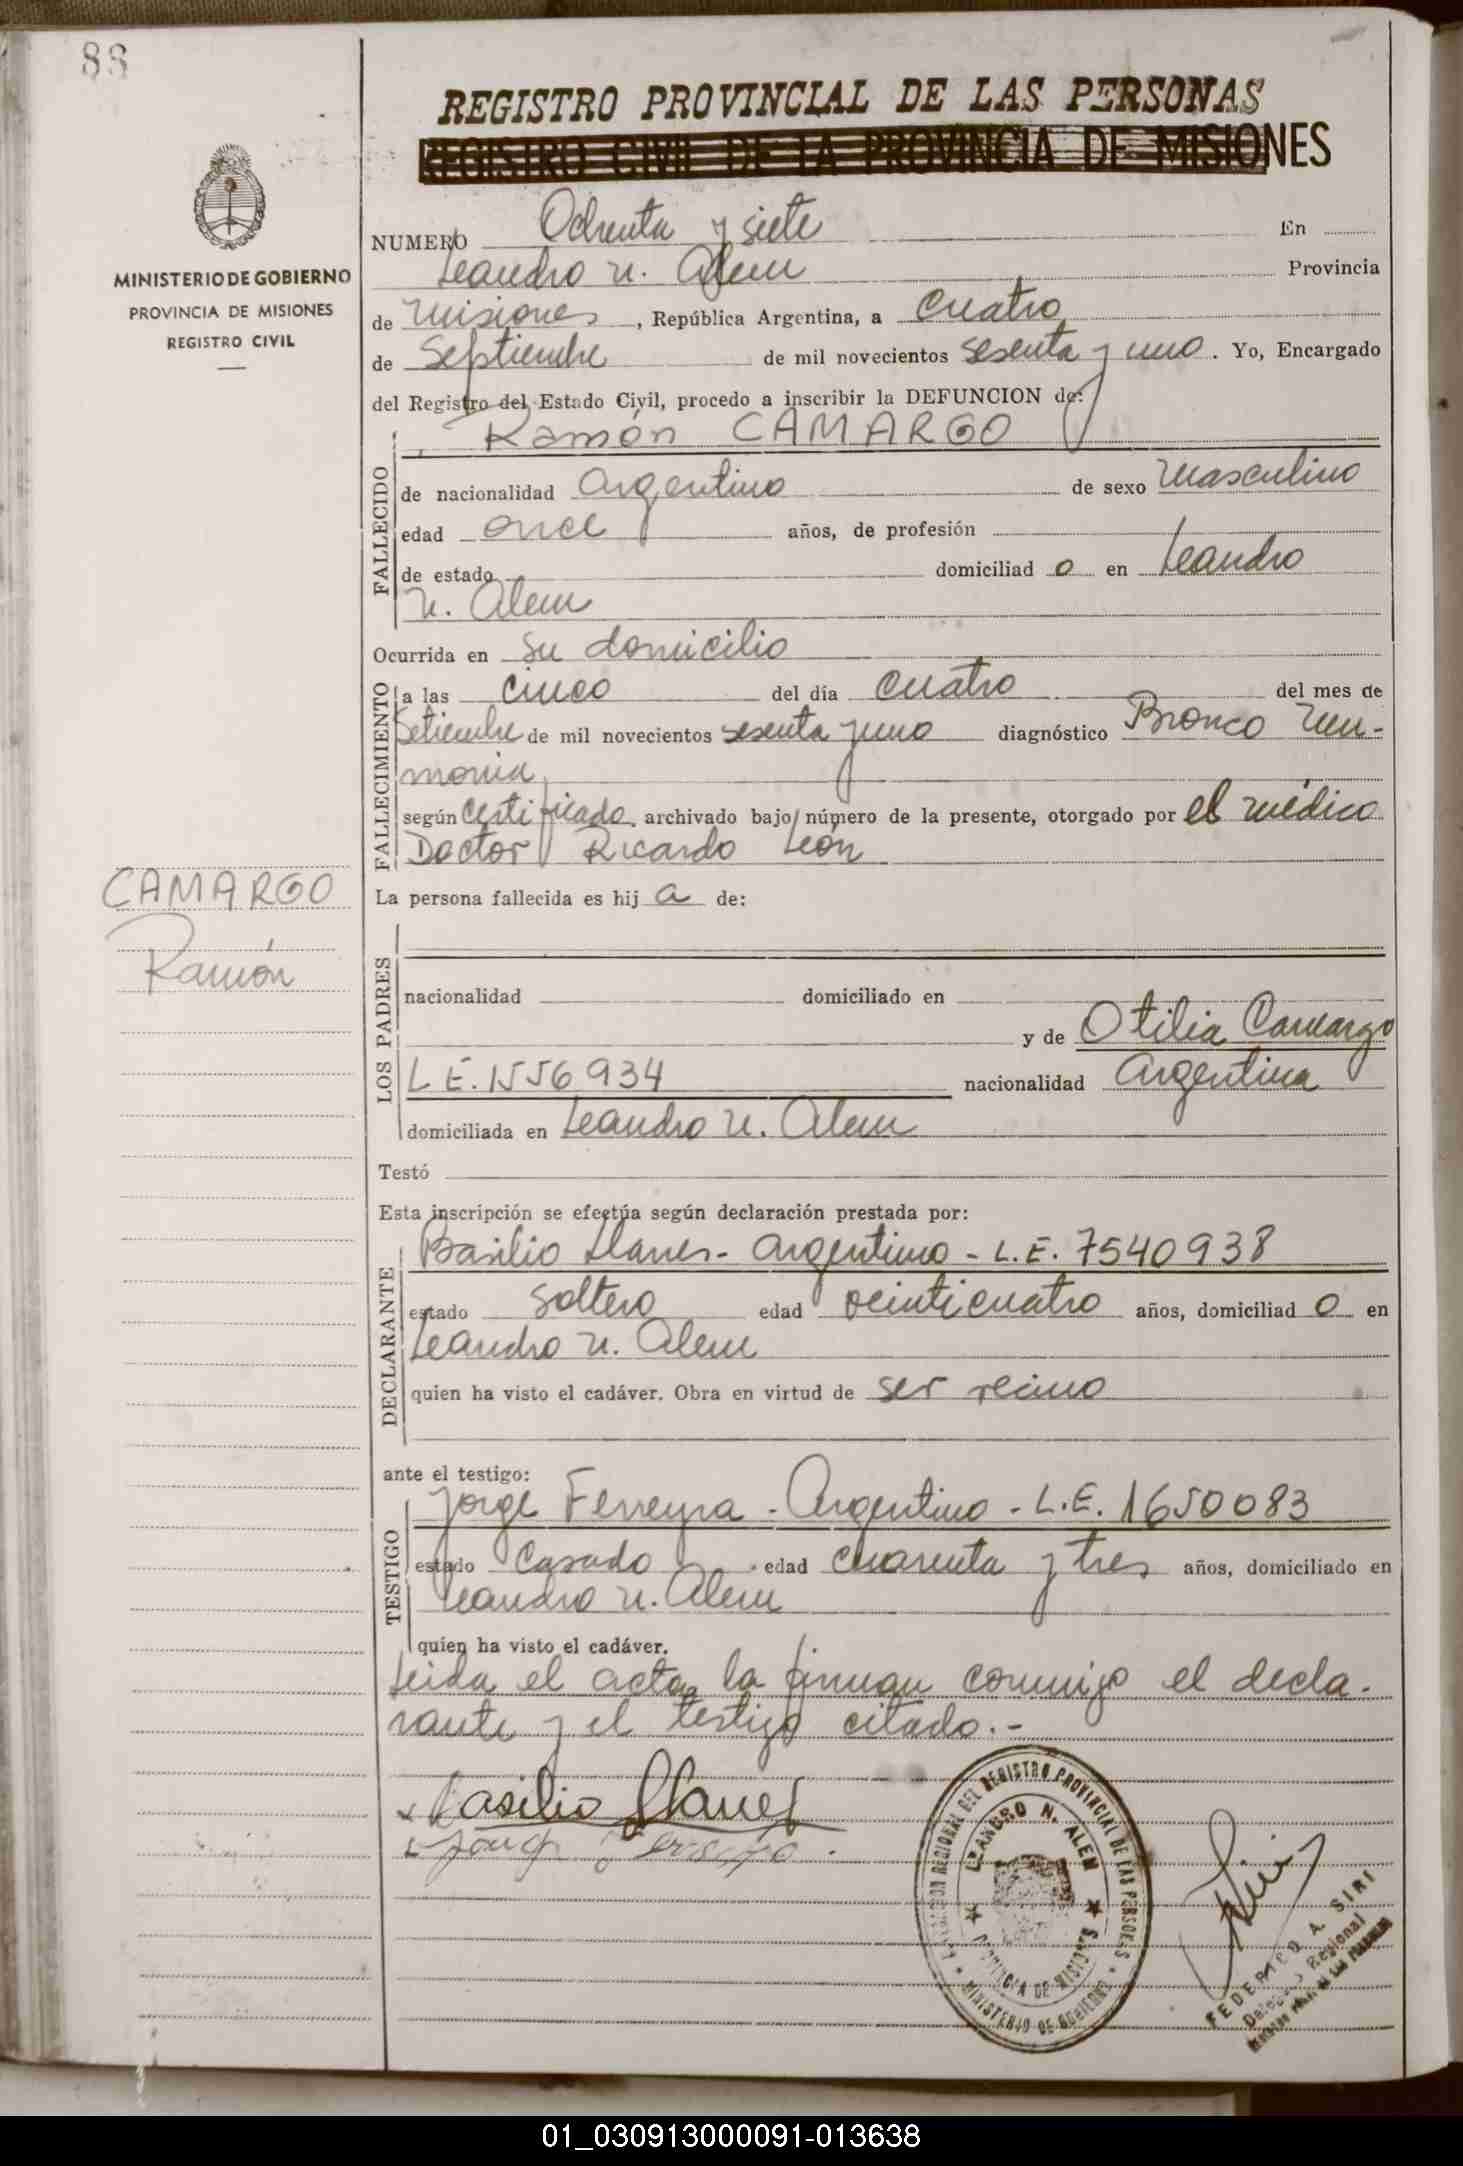 88
REGISTRO PROVINCIAL DE LAS PERSONAS
REGISTRO CIVIL DE LA PROVINCIA DE MISIONES
MINISTERIO DE GOBIERNO
PROVINCIA DE MISIONES
REGISTRO CIVIL
NUMERO Ochenta y siete En
Leandro N. Alem Provincia
de Misiones, República Argentina, a cuatro
de Septiembre de mil novecientos sesenta y uno. Yo, Encargado
del Registro del Estado Civil, procedo a inscribir la DEFUNCION de:
Ramón CAMARGO
FALLECIDO
de nacionalidad Argentino de sexo Masculino
edad once años, de profesión
de estado domiciliad o en Leandro
N. Alem
Ocurrida en su domicilio
FALLECIMIENTO
a las cinco del día cuatro del mes de
Setiembre de mil novecientos sesenta y uno diagnóstico Bronco Neu-
monia
según certificado archivado bajo número de la presente, otorgado por el médico
Doctor Ricardo León
CAMARGO
Ramón
La persona fallecida es hij a de:
LOS PADRES
nacionalidad domiciliado en
y de Otilia Camargo
L E. 1556934 nacionalidad Argentina
domiciliada en Leandro N. Alem
Testó
Esta inscripción se efectúa según declaración prestada por:
DECLARANTE
Basilio Llanes - Argentino - L.E. 7540938
estado soltero edad veinticuatro años, domiciliad o en
Leandro N. Alem
quien ha visto el cadáver. Obra en virtud de ser vecino
ante el testigo:
TESTIGO
Jorge Ferreyra - Argentino - L.E. 1650083
estado Casado edad cuarenta y tres años, domiciliado en
Leandro N. Alem
quien ha visto el cadáver.
Leida el acta, la firman conmigo el decla-
rante y el testigo citado.-
Basilio Llanes
DELEGACION REGIONAL DEL REGISTRO PROVINCIAL DE LAS PERSONAS
LEANDRO N. ALEM
PROVINCIA DE MISIONES
MINISTERIO DE GOBIERNO
FEDERICO A. SIRI
Delegado Regional
01_030913000091-013638